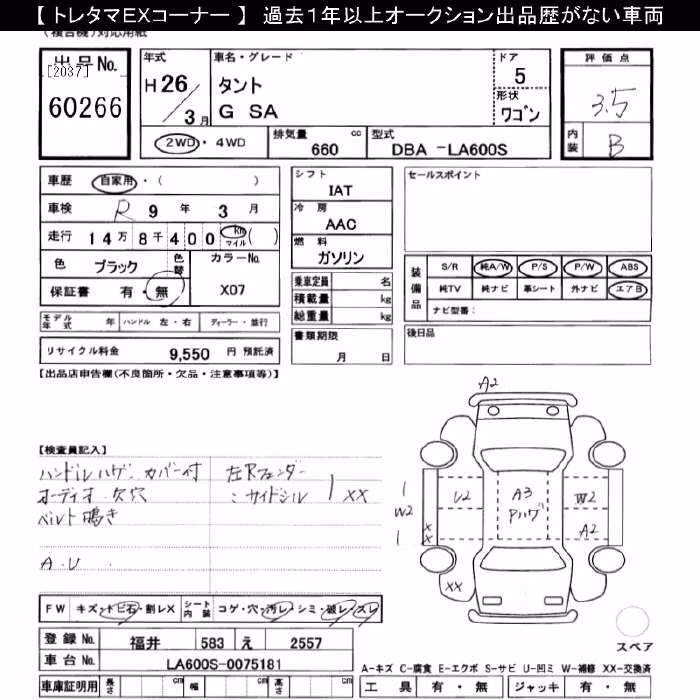 【 トレタマEXコーナー 】 過去１年以上オークション出品歴がない車両
(複合機)対応用紙
出品No. [2037] 60266
年式 H 26 / 3 月
車名・グレード タント G SA
ドア 5
形状 ワゴン
評価点 3.5
内装 B
2WD ・ 4WD
排気量 660 cc
型式 DBA -LA600S
車歴 自家用・( )
車検 R 9 年 3 月
走行 14万 8千 4 0 0 km マイル ( )
色 ブラック 色替 カラーNo. X07
保証書 有・無
モデル年式 年 ハンドル 左・右 ディーラー・並行
リサイクル料金 9,550 円 預託済
シフト IAT
冷房 AAC
燃料 ガソリン
乗車定員 名
積載量 kg
総重量 kg
書類期限 月 日
セールスポイント
装備品 S/R 純A/W P/S P/W ABS
純TV 純ナビ 革シート 外ナビ エアB
ナビ型番：
後日品
【出品店申告欄(不良箇所・欠品・注意事項等)】
【検査員記入】
ハンドルハゲ、カバー付 左Rフェンダー
オーディオ 欠穴 : サイドシル XX
ベルト鳴き
A.U
A2
1
W2
1
U2
A3
Pハゲ
W2
A2
X
X
XX
スペア
FW キズ・トビ石・割レX シート内装 コゲ・穴・汚レ・シミ・破レ・スレ
登録No. 福井 583 え 2557
車台No. LA600S-0075181
車庫証明用 長さ cm 幅 cm 高さ cm
A-キズ C-腐食 E-エクボ S-サビ U-凹ミ W-補修 XX-交換済
工具 有・無 ジャッキ 有・無